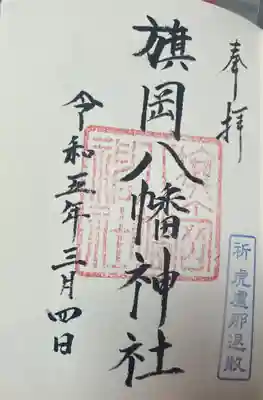 奉拝
旗岡八幡神社
令和五年三月四日
祈 虎盧那退散